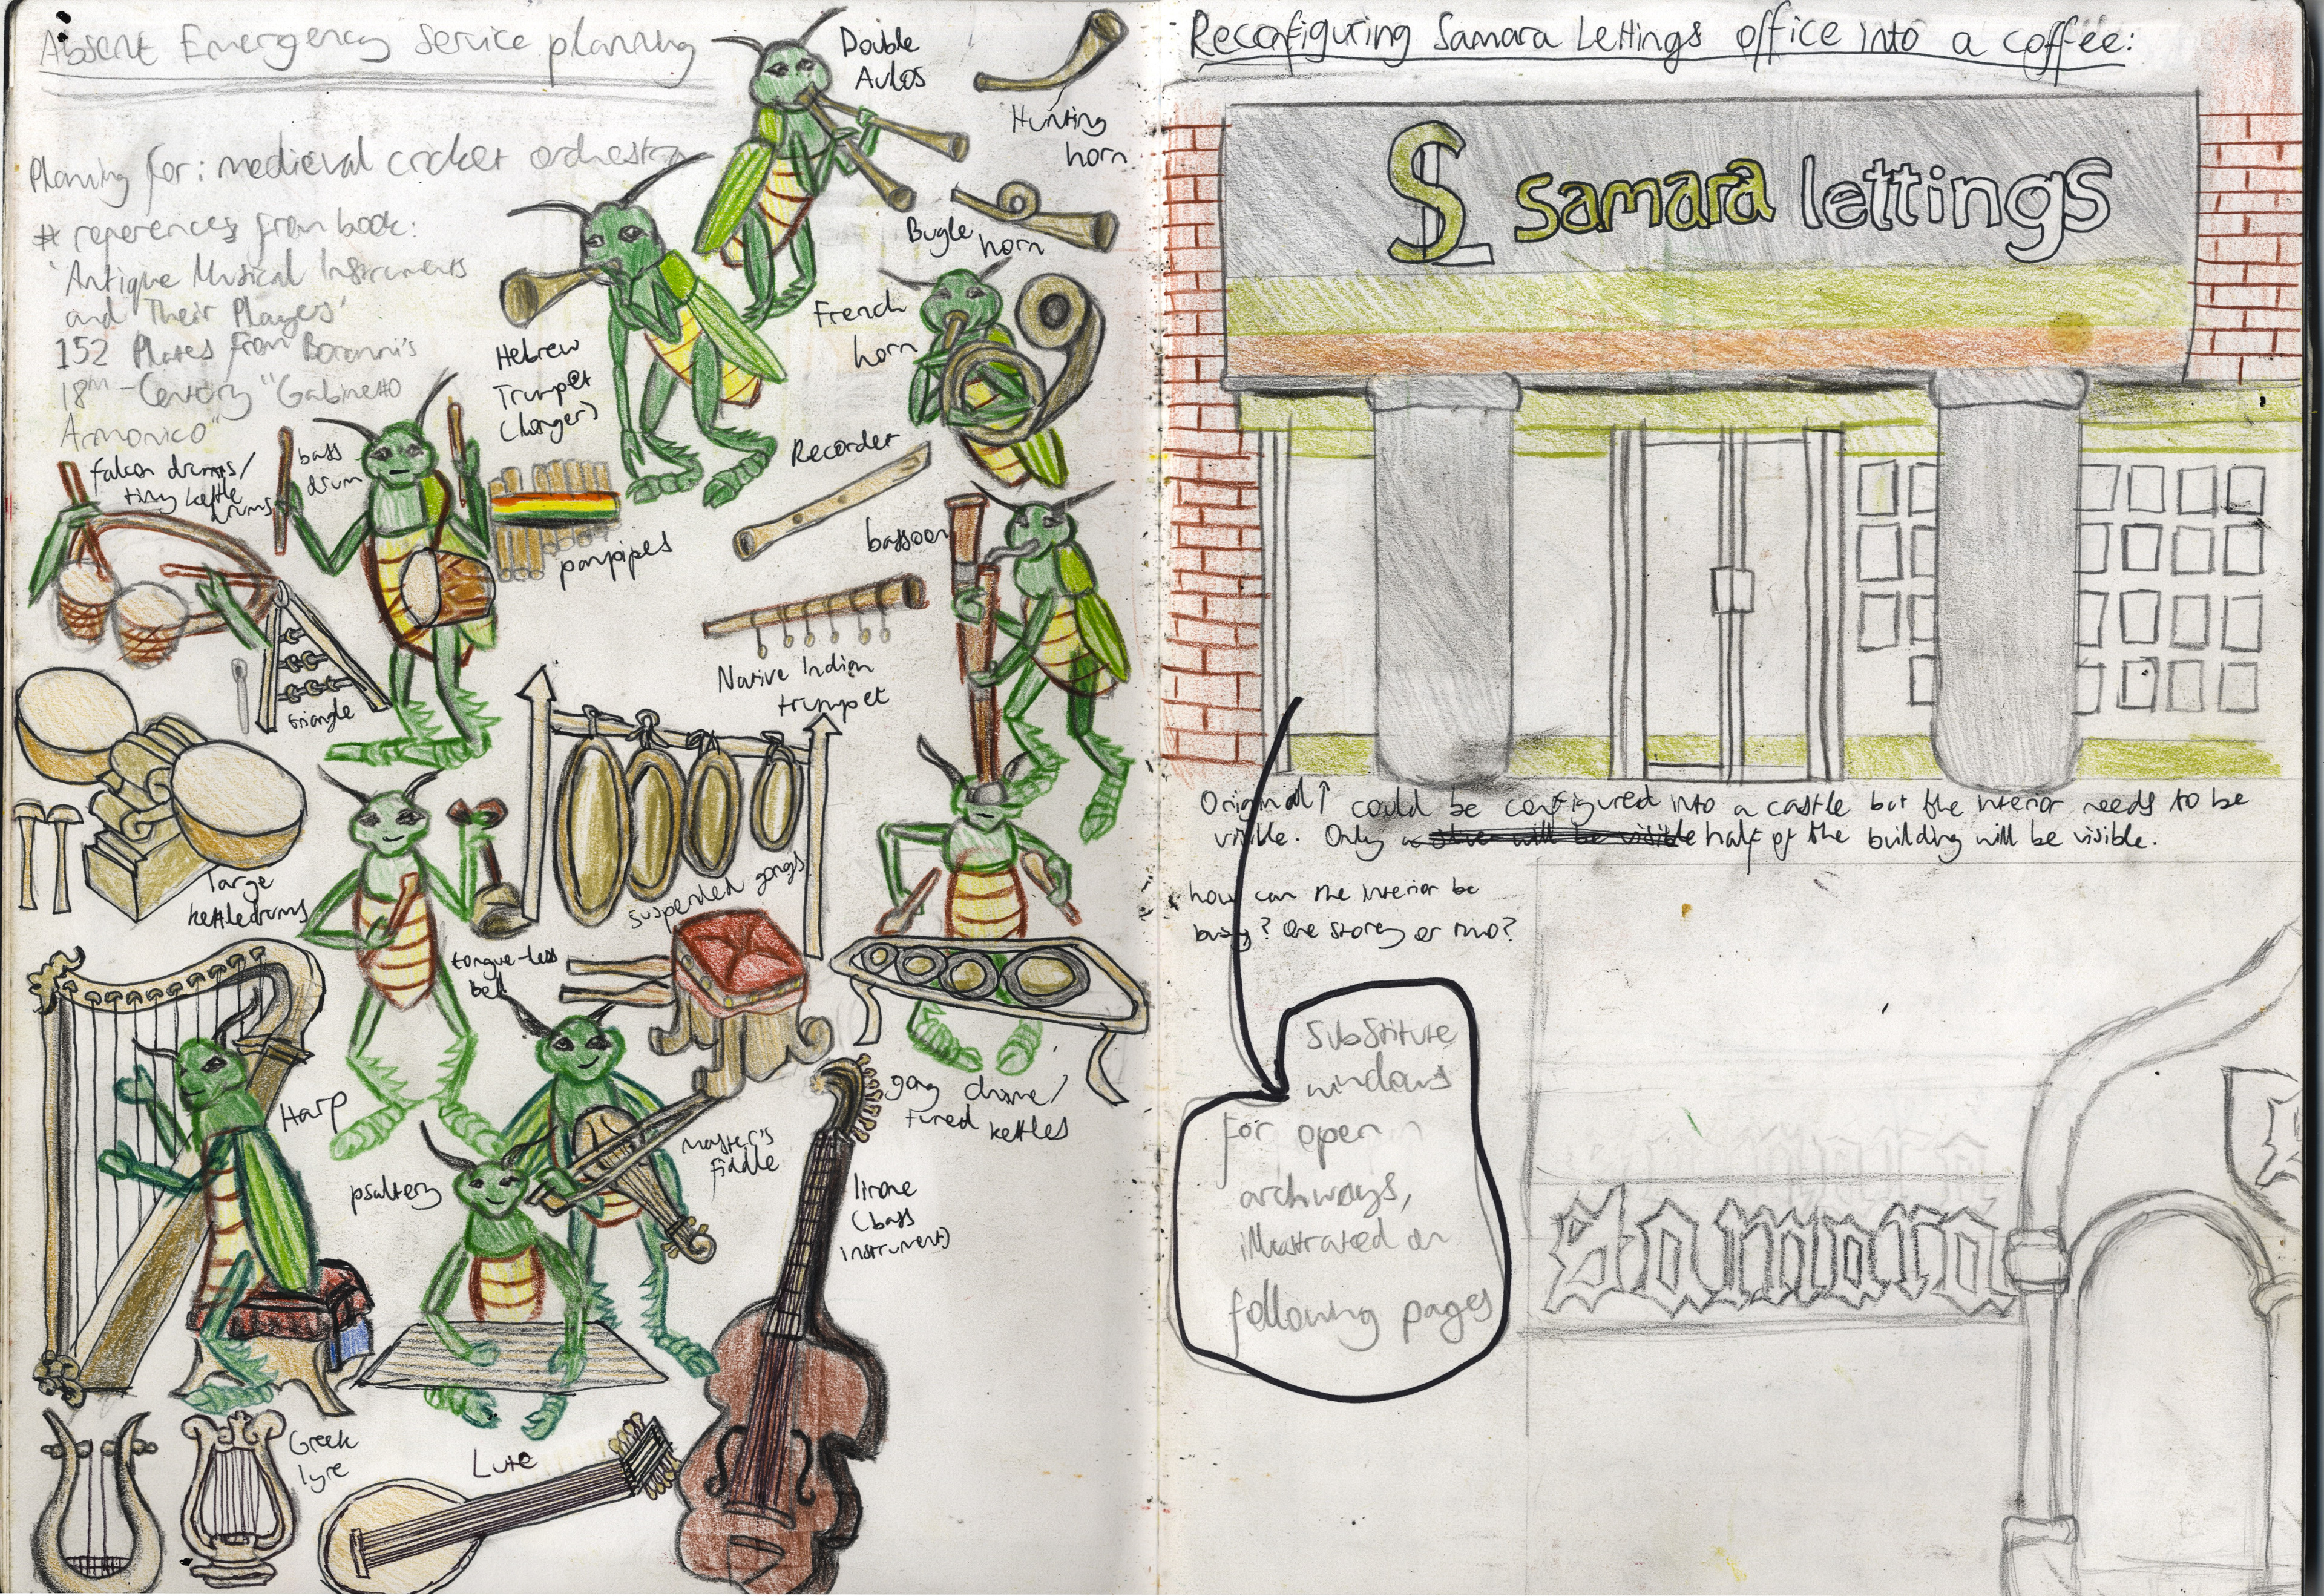 Absent Emergency Service planning
Planning for: medieval cricket orchestra
* references from book:
'Antique Musical Instruments
and Their Players'
152 Plates from Bonanni's
18th-Century "Gabinetto
Armonico"
Double
Aulos
Hunting
horn
Bugle
horn
Hebrew
Trumpet
(longer)
French
horn
Recorder
falcon drums/
tiny kettle
drums
bass
drum
panpipes
bassoon
triangle
Native Indian
trumpet
large
kettledrums
suspended gongs
tongue-less
bell
gong chime/
tuned kettles
Harp
master's
fiddle
psaltery
lirone
(bass
instrument)
Greek
lyre
Lute
Reconfiguring Samara Lettings office into a coffee:
SL samara lettings
Original↑ could be configured into a castle but the interior needs to be
visible. Only a sliver will be visible half of the building will be visible.
how can the interior be
busy? One storey or two?
Substitute
windows
for open
archways,
illustrated on
following pages
Samara